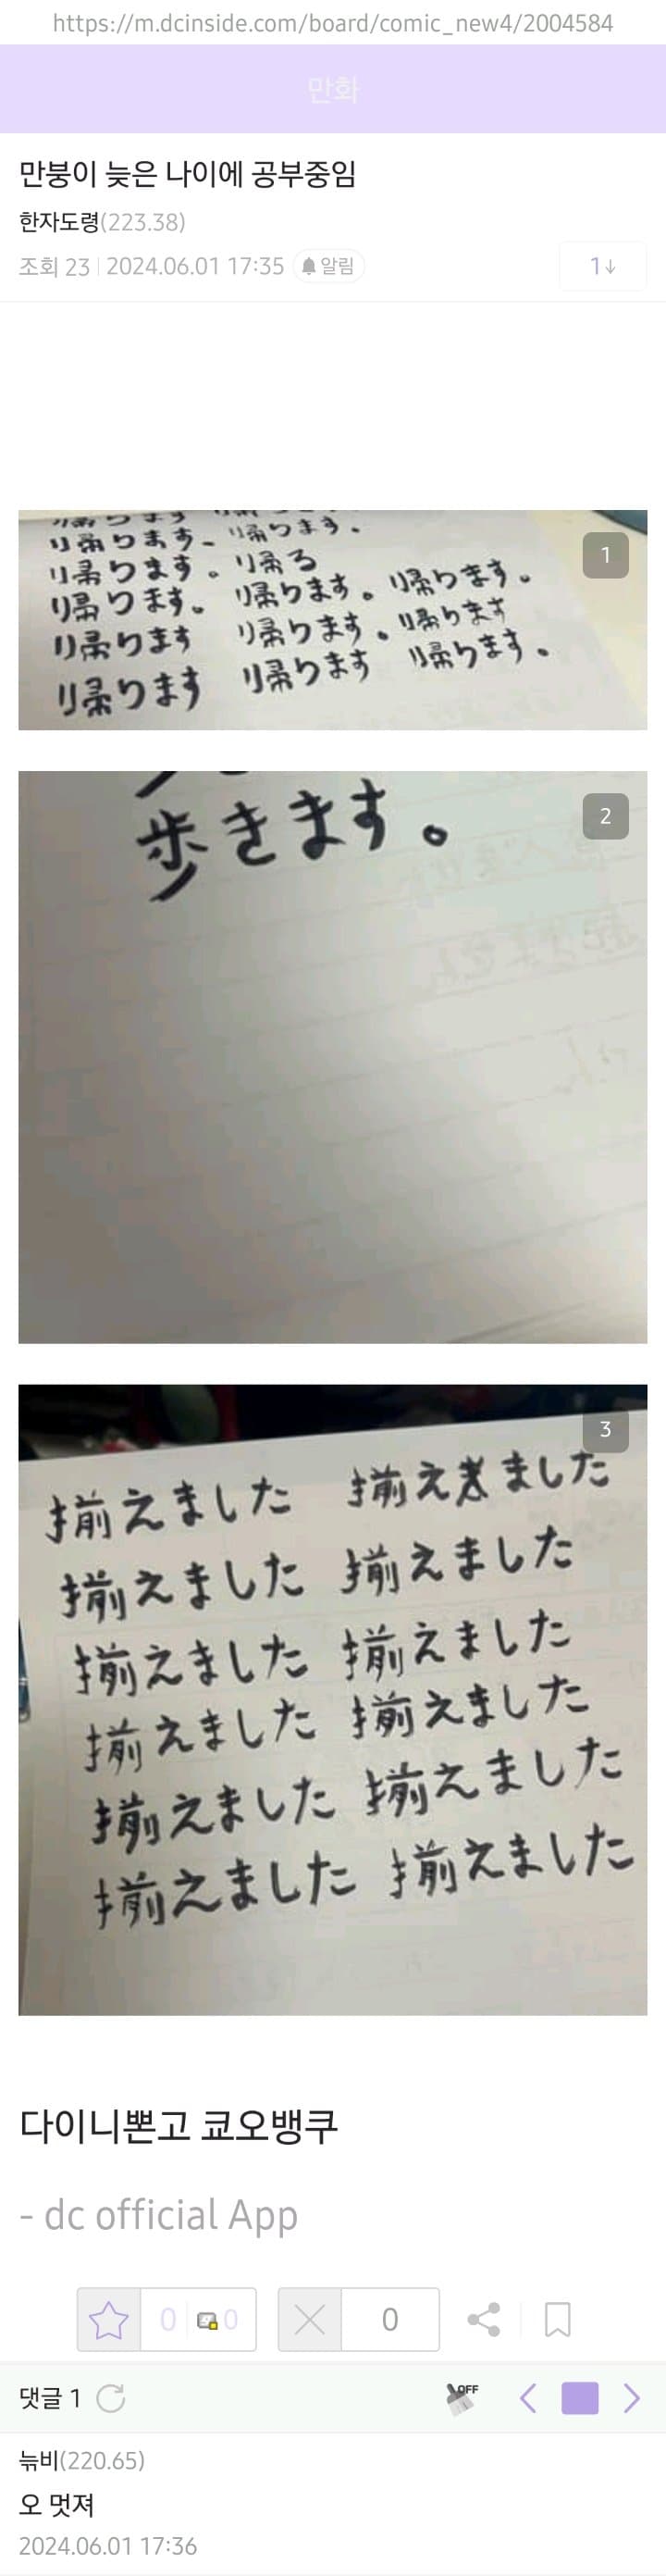 https://m.dcinside.com/board/comic_new4/2004584
만화
만붕이 늦은 나이에 공부중임
한자도령(223.38)
조회 23 | 2024.06.01 17:35 알림
1↓
1
帰ります。 帰ります。
帰ります。帰る
帰ります。 帰ります。帰ります。
帰ります 帰ります。帰ります
帰ります 帰ります 帰ります。
2
歩きます。
3
揃えました 揃えました
揃えました 揃えました
揃えました 揃えました
揃えました 揃えました
揃えました 揃えました
揃えました 揃えました
다이니뽄고 쿄오뱅쿠
- dc official App
0 0
0
댓글 1
OFF
뉶비(220.65)
오 멋져
2024.06.01 17:36